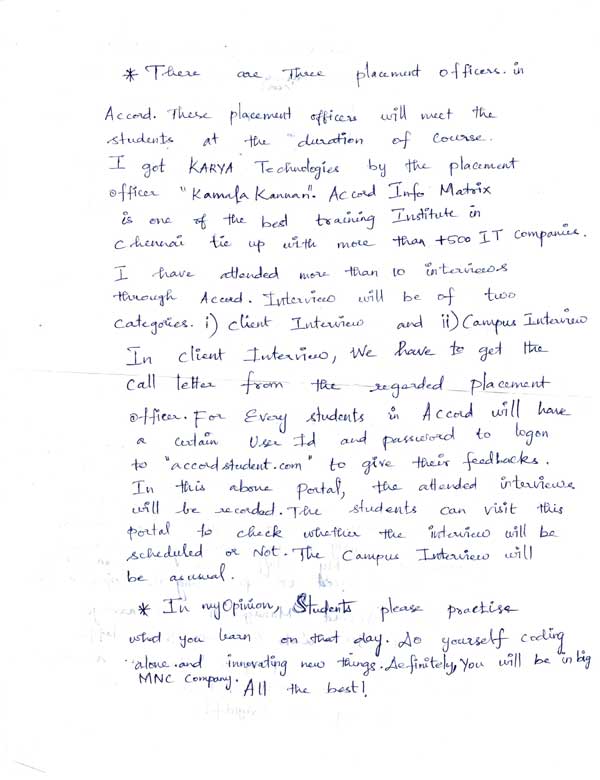 * There are Three placement officers. in
Accord. These placement officers will meet the
students at the duration of course.
I got KARYA Technologies by the placement
officer "Kamala Kannan". Accord Info Matrix
is one of the best training Institute in
Chennai tie up with more than +500 IT companies.
I have attended more than 10 interviews
through Accord. Interview will be of two
Categories. i) Client Interview and ii) Campus Interview
In client Interview, We have to get the
call letter from the regarded placement
officer. For Every students in Accord will have
a certain User Id and password to logon
to "accordstudent.com" to give their feedbacks.
In this above Portal, the attended interviews
will be recorded. The students can visit this
portal to check whether the interview will be
scheduled or Not. The Campus Interview will
be asusual.
* In my Opinion, Students please practise
what you learn on that day. Do yourself coding
alone. and innovating new things. Definitely, You will be in big
MNC Company.
All the best!